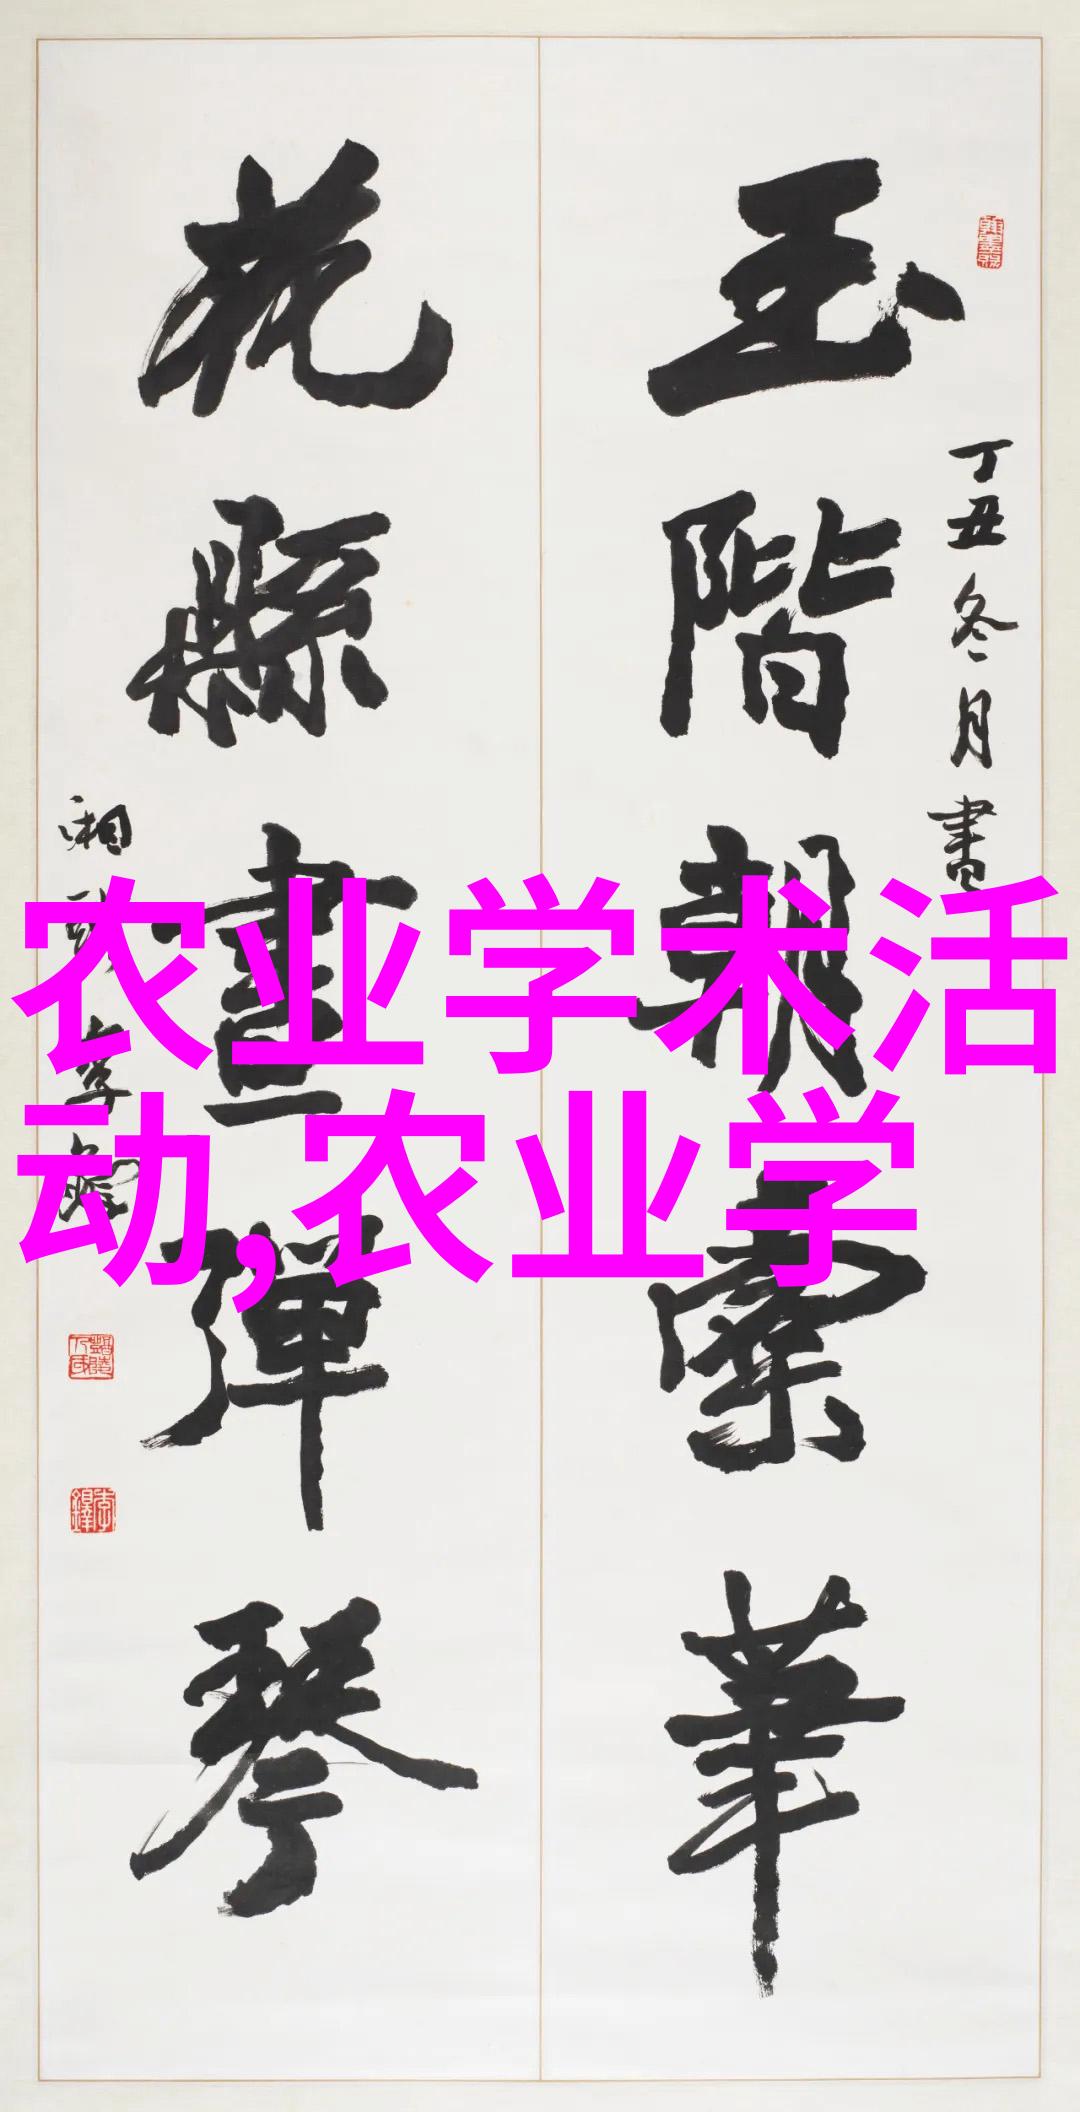 玉階朝紫華
花縣畫彈琴
丁丑冬月書
湘
李鐸
农业学术活
动,农业学